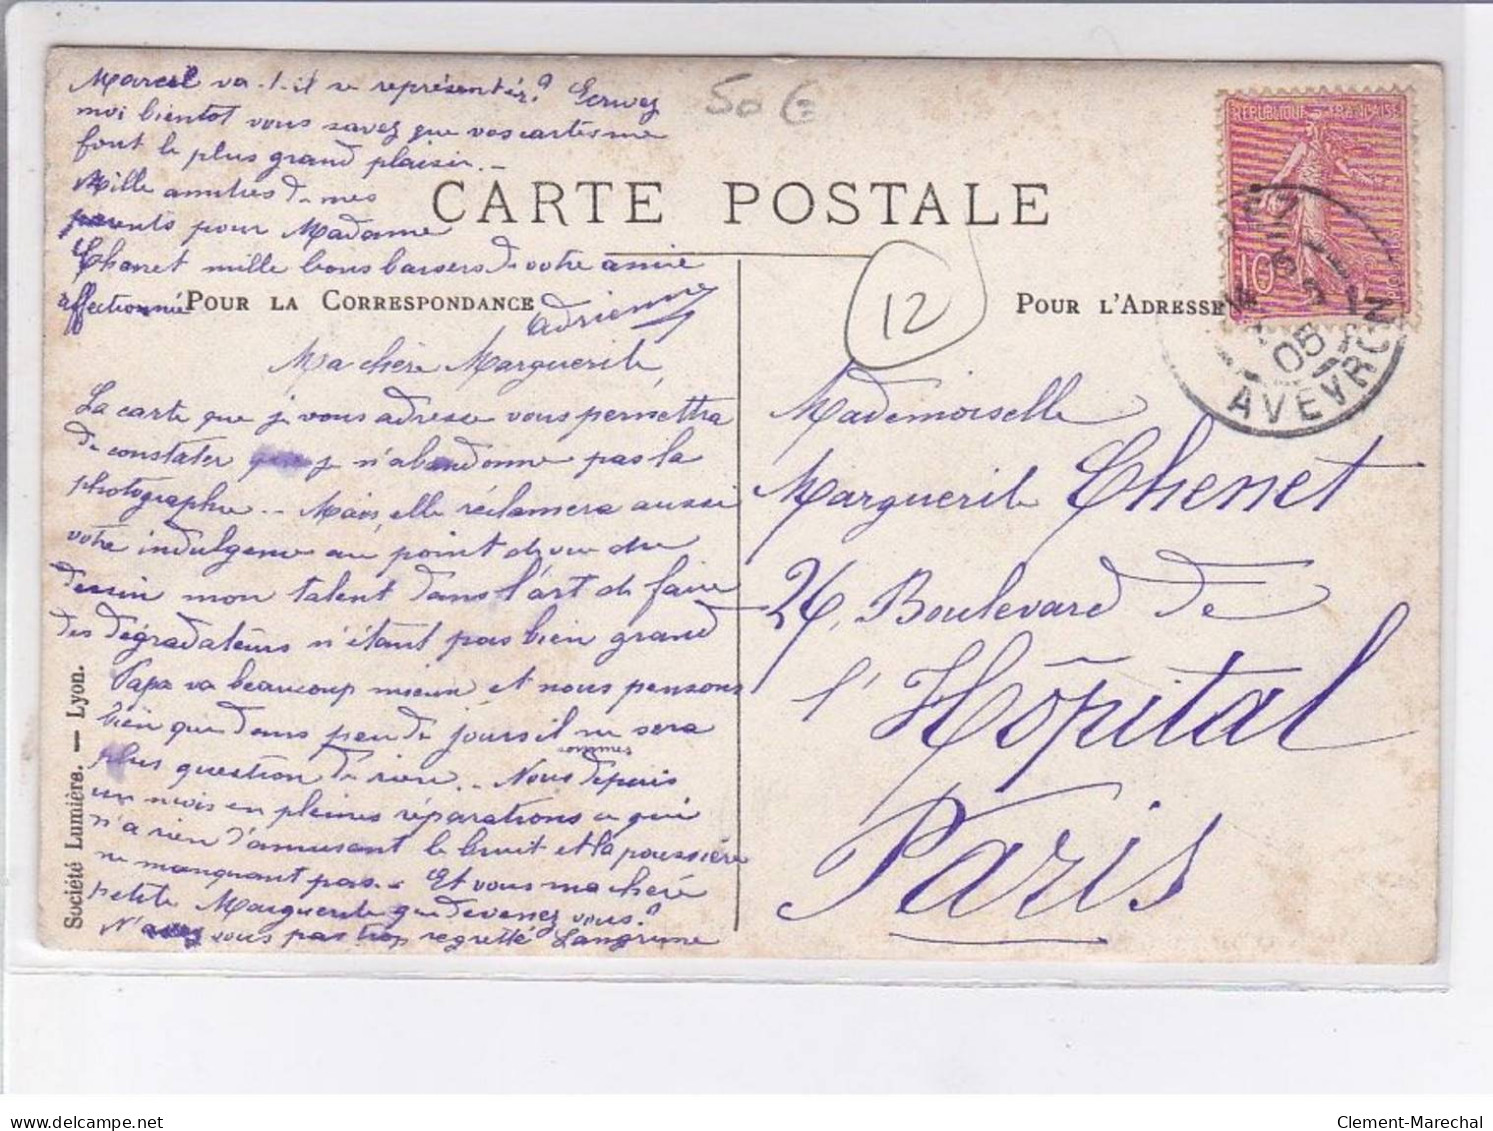 Marcel va-t-il se représenter? Ecrivez
moi bientot vous savez que vos cartes me
font le plus grand plaisir. -
Mille amitiés de mes
parents pour Madame
Chenet mille bons baisers de votre amie
affectionnée
Adrienne
50 €
CARTE POSTALE
POUR LA CORRESPONDANCE
POUR L'ADRESSE
12
REPUBLIQUE FRANÇAISE
10
05
AVEYRON
Ma chère Marguerite,
La carte que je vous adresse vous permettra
de constater que je n'abandonne pas la
photographie. - Mais, elle réclamera aussi
votre indulgence au point de vue du
dessin mon talent dans l'art de faire
des dégradateurs n'étant pas bien grand
Papa va beaucoup mieux et nous pensons
bien que dans peu de jours il ne sera
plus question de rien. - Nous sommes depuis
un mois en pleines réparations ce qui
n'a rien d'amusant le bruit et la poussière
ne manquant pas. - Et vous ma chère
petite Marguerite que devenez vous?
N'avez vous pas trop regretté Langrune
Mademoiselle
Marguerite Chenet
26, Boulevard de
l'Hôpital
Paris
Société Lumière. — Lyon.
Clement-Marechal